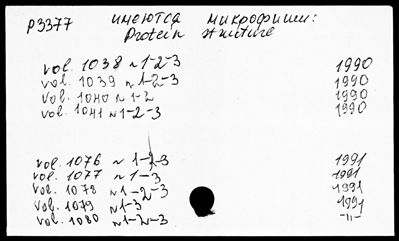 P3377 имеются микрофиши:
Protein structure
vol. 1038 N 1-2-3 1990
vol. 1039 N 1-2-3 1990
vol. 1040 N 1-2 1990
vol. 1041 N 1-2-3 1990
vol. 1076 N 1-2-3 1991
vol. 1077 N 1-3 1991
vol. 1078 N 1-2-3 1991
vol. 1079 N 1-3 1991
vol. 1080 N 1-2-3 -11-